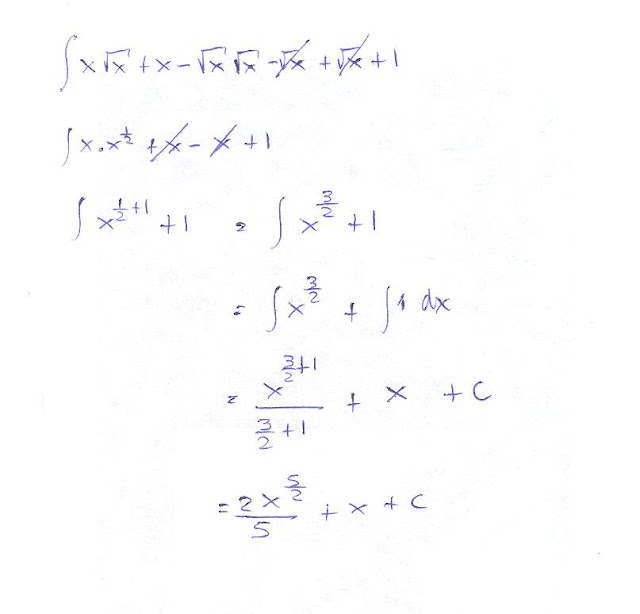 ∫ x√x + x − √x √x − √x + √x + 1
∫ x · x^(1/2) + x − x + 1
∫ x^(1/2 + 1) + 1 = ∫ x^(3/2) + 1
= ∫ x^(3/2) + ∫ 1 dx
= x^(3/2 + 1) / (3/2 + 1) + x + C
= 2x^(5/2) / 5 + x + C